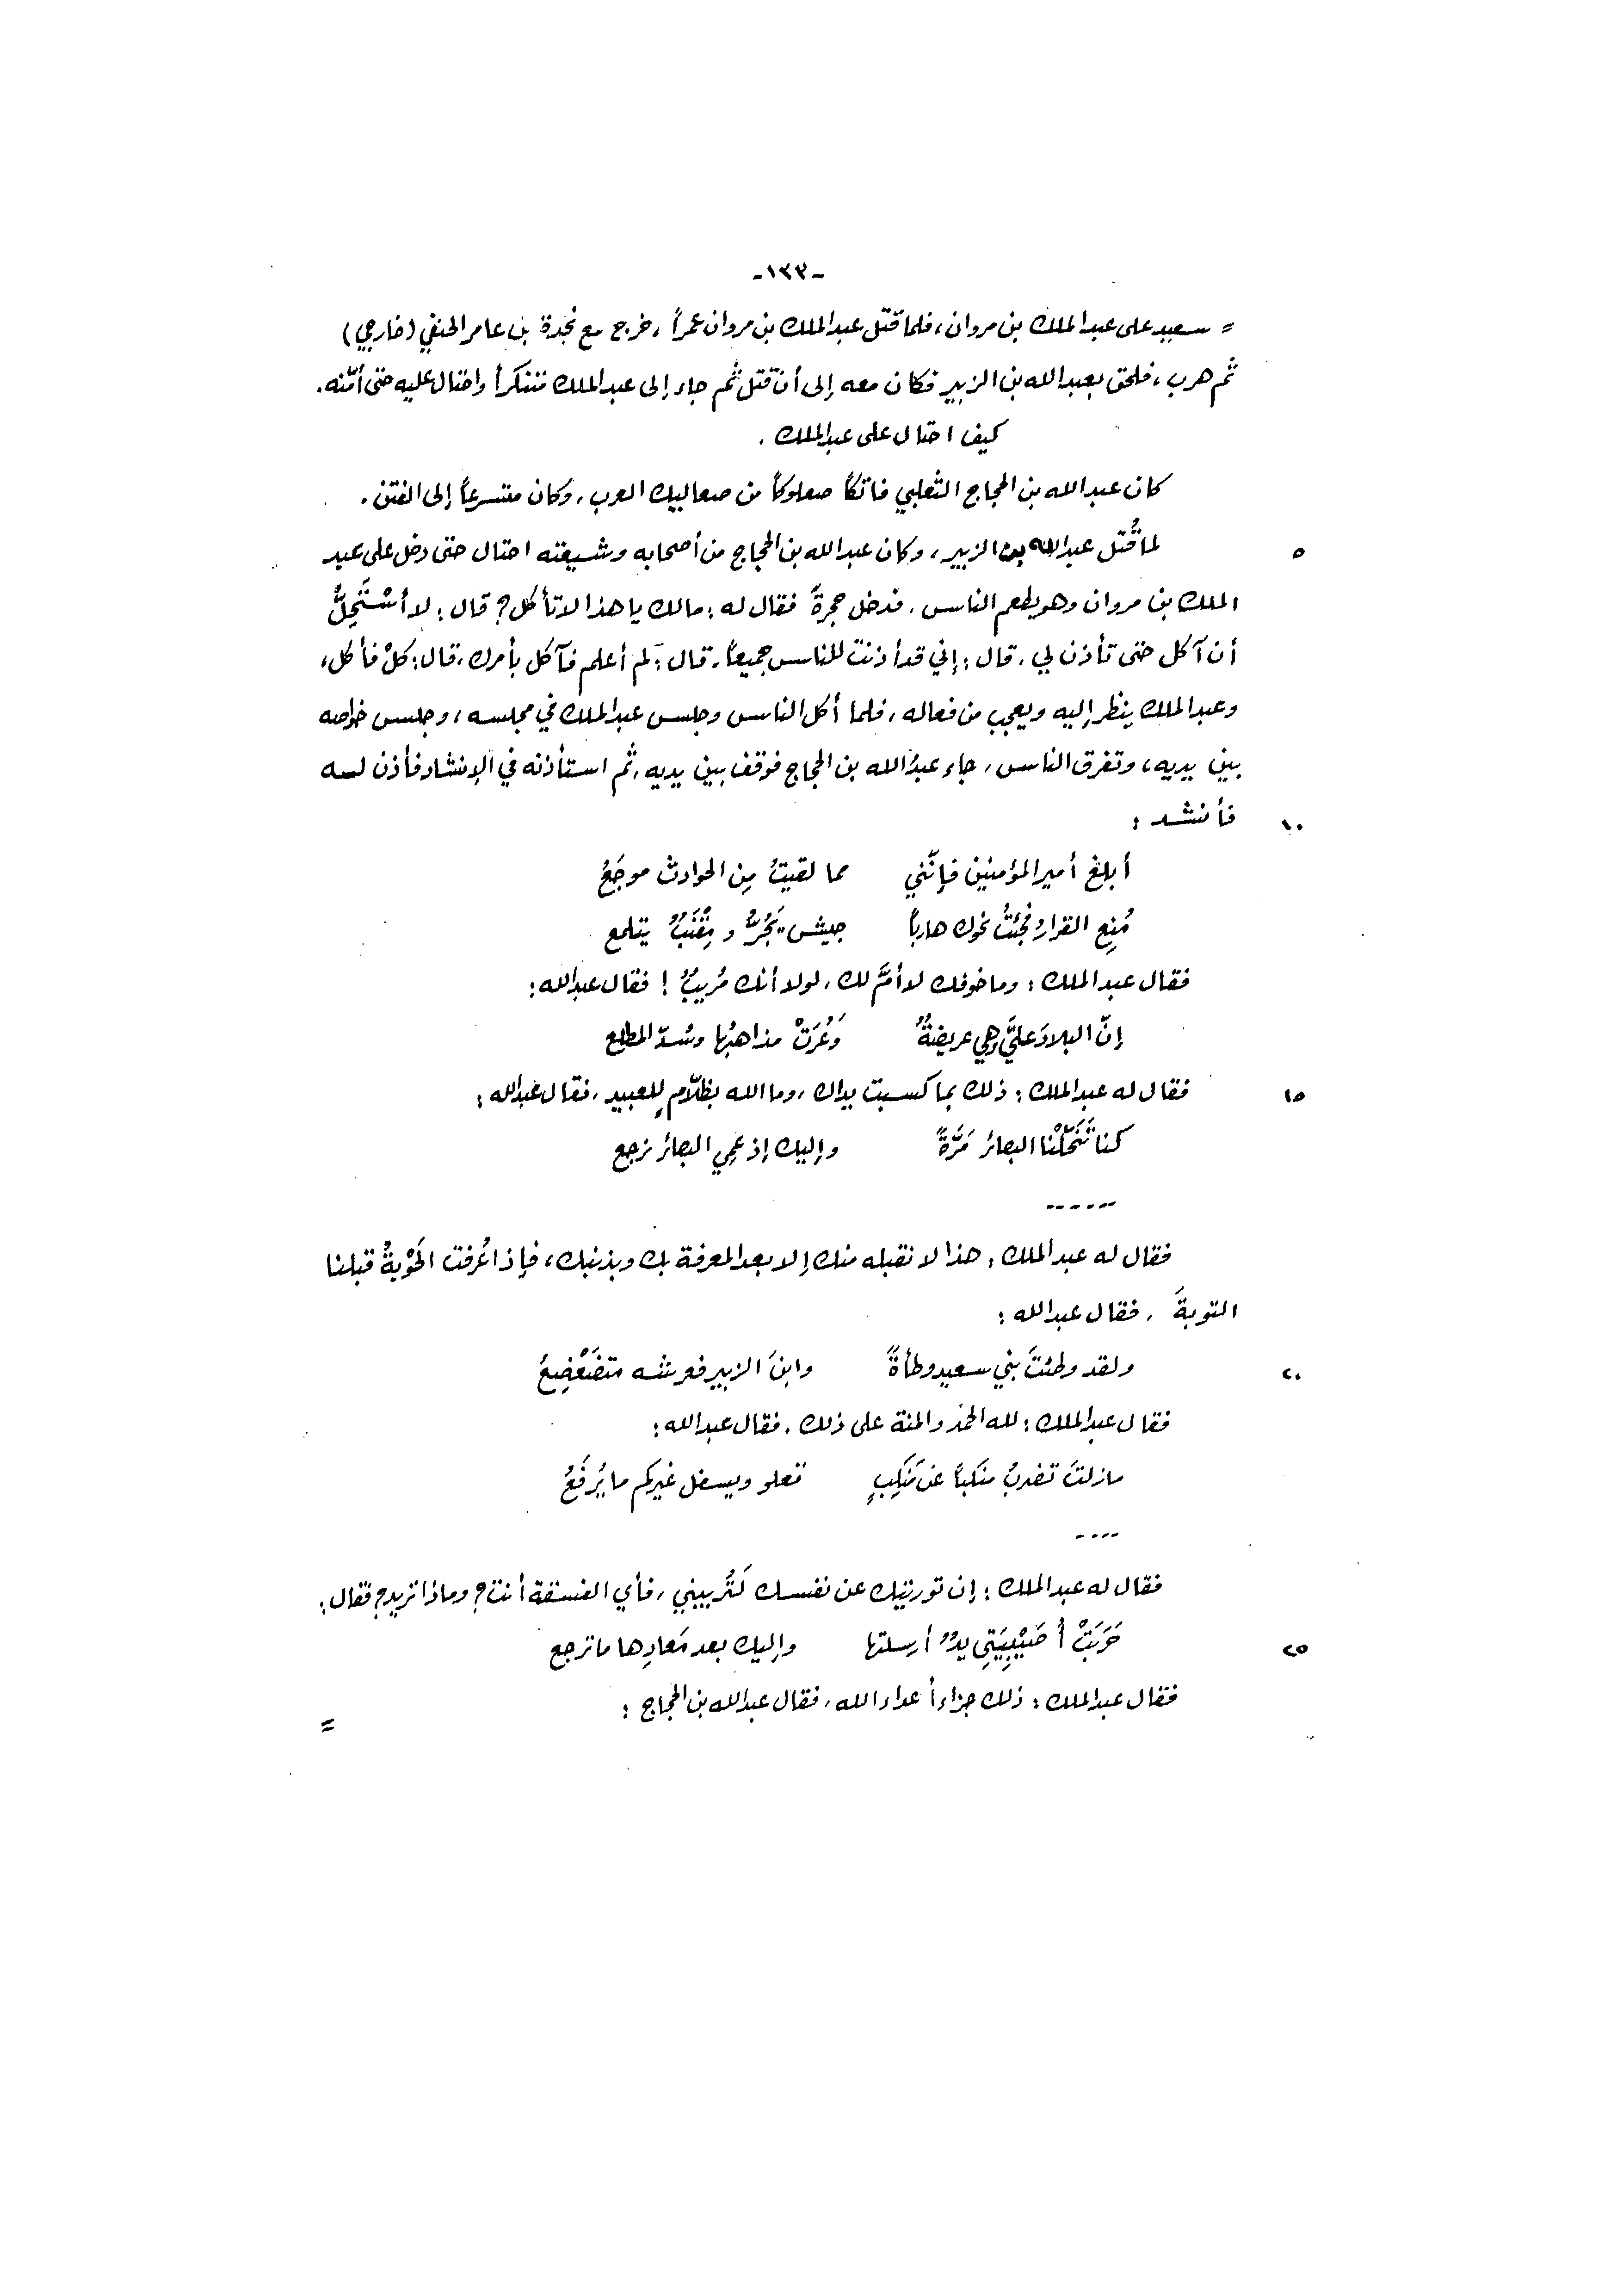 -١٣٣-
= سعيد على عبد الملك بن مروان، فلما قتل عبد الملك بن مروان عمراً، خرج مع نجدة بن عامر الحنفي (خارجي)
ثم هرب، فلحق بعبد الله بن الزبير فكان معه إلى أن قتل ثم جاء إلى عبد الملك متنكراً واحتال عليه حتى أمّنه.
كيف احتال على عبد الملك.
كان عبد الله بن الحجاج الثعلبي فاتكاً صعلوكاً من صعاليك العرب، وكان متسرعاً إلى الفتن.
٥ لما قُتل عبد الله بن الزبير، وكان عبد الله بن الحجاج من أصحابه وشيعته احتال حتى دخل على عبد
الملك بن مروان وهو يطعم الناس، فدخل حجرةً فقال له: مالك يا هذا لا تأكل؟ قال: لا أسْتَحِلُّ
أن آكل حتى تأذن لي، قال: إني قد أذنت للناس جميعاً، قال: لم أعلم فآكل بأمرك، قال: كلْ فأكل،
وعبد الملك ينظر إليه ويعجب من فعاله، فلما أكل الناس وجلس عبد الملك في مجلسه، وجلس خواصه
بين يديه، وتفرق الناس، جاء عبدُ الله بن الحجاج فوقف بين يديه، ثم استأذنه في الإنشاد فأذن لسه
١٠ فأنشد:
أبلغ أمير المؤمنين فإنّني مما لقيتُ مِن الحوادث موجَعُ
مُنِع القرارُ فجئتُ نحوك هارباً جيش يَجُرُّ و مِقْنَبٌ يتلمع
فقال عبد الملك: وما خوفك لا أمَّ لك، لولا أنك مُريبٌ! فقال عبد الله:
إنّ البلادَ عليَّ وهي عريضةٌ وَعُرَتْ مذاهبُها وسُدّ المطلع
١٥ فقال له عبد الملك: ذلك بما كسبت يداك، وما الله بظلّامٍ للعبيد، فقال عبد الله:
كنا تَنَحَّلْنا البصائر مَرَّةً وإليك إذ عَمِي البصائر نرجع
------
فقال له عبد الملك: هذا لا نقبله منك إلا بعد المعرفة بك وبذنبك، فإذا عُرفت الحَوْبةُ قبلنا
التوبةَ، فقال عبد الله:
٢٠ ولقد وطئتَ بني سعيد وطأةً وابنَ الزبير فعرشه متضَعْضِعُ
فقال عبد الملك: لله الحمد والمنة على ذلك، فقال عبد الله:
مازلتَ تضربُ منكباً عن مَنكِبٍ تعلو ويسفل غيركم ما يُرفَعُ
----
فقال له عبد الملك: إن توريتك عن نفسك لَتُريبني، فأي الفسقة أنت؟ وماذا تريد؟ فقال:
٢٥ حَرَبَتْ أُصَيْبِيَتِي يدٌ أرسلتها وإليك بعد مَعادِها ما ترجع
فقال عبد الملك: ذلك جزاء أعداء الله، فقال عبد الله بن الحجاج:
=